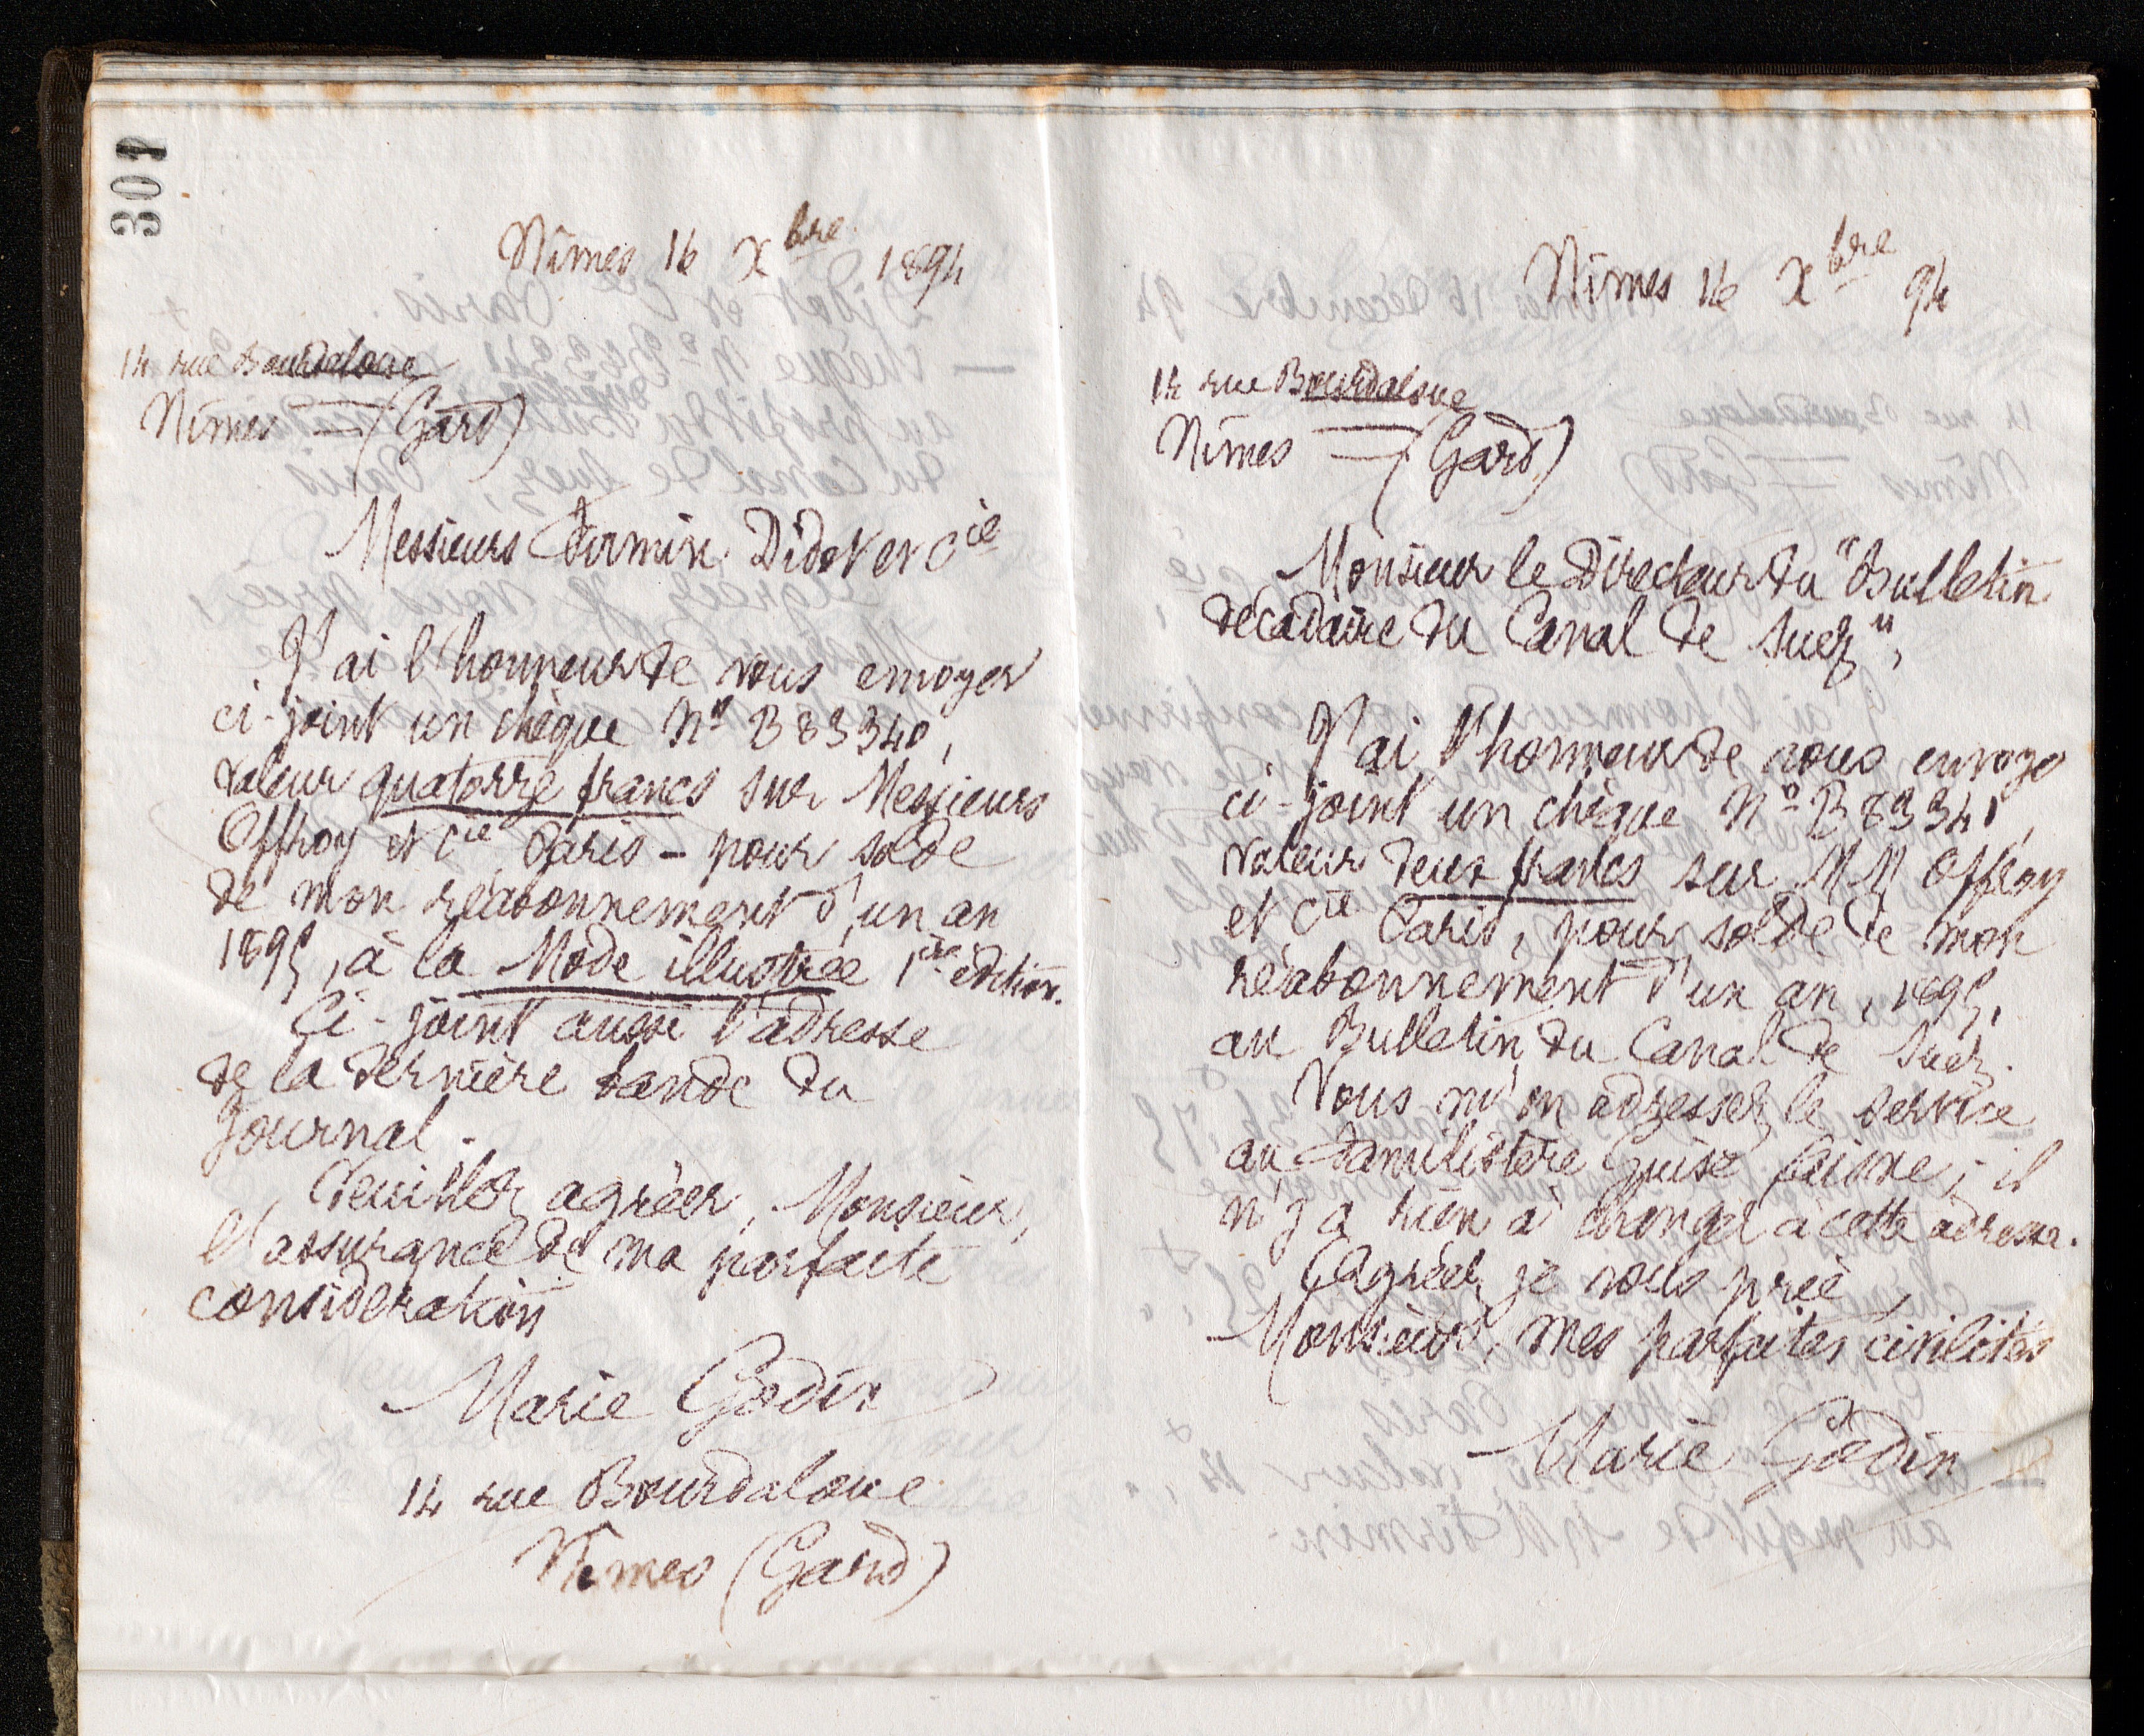 301
Nîmes 16 Xbre 1894
14 rue Bourdaloue
Nîmes = (Gard)
Messieurs Firmin Didot et Cie
J'ai l'honneur de vous envoyer
ci-joint un chèque No B 83340,
valeur quatorze francs sur Messieurs
Offroy et Cie Paris – pour solde
de mon réabonnement d'un an
1895, à la Mode illustrée, 1ère édition.
Ci-joint aussi l'adresse
de la dernière bande du
Journal.
Veuillez agréer, Monsieur,
l'assurance de ma parfaite
considération
Marie Godin
14 rue Bourdaloue
Nîmes (Gard)
Nîmes 16 Xbre 94
14 rue Bourdaloue
Nîmes = (Gard)
Monsieur le Directeur du "Bulletin
décadaire du Canal de Suez",
J'ai l'honneur de vous envoyer
ci-joint un chèque No B 83341,
valeur deux francs sur MM Offroy
et Cie Paris, pour solde de mon
réabonnement d'un an, 1895,
au Bulletin du Canal de Suez.
Vous m'en adressez le service
au Familistère Guise Aisne; il
n'y a rien à changer à cette adresse.
Agréez je vous prie,
Monsieur, mes parfaites civilités
Marie Godin